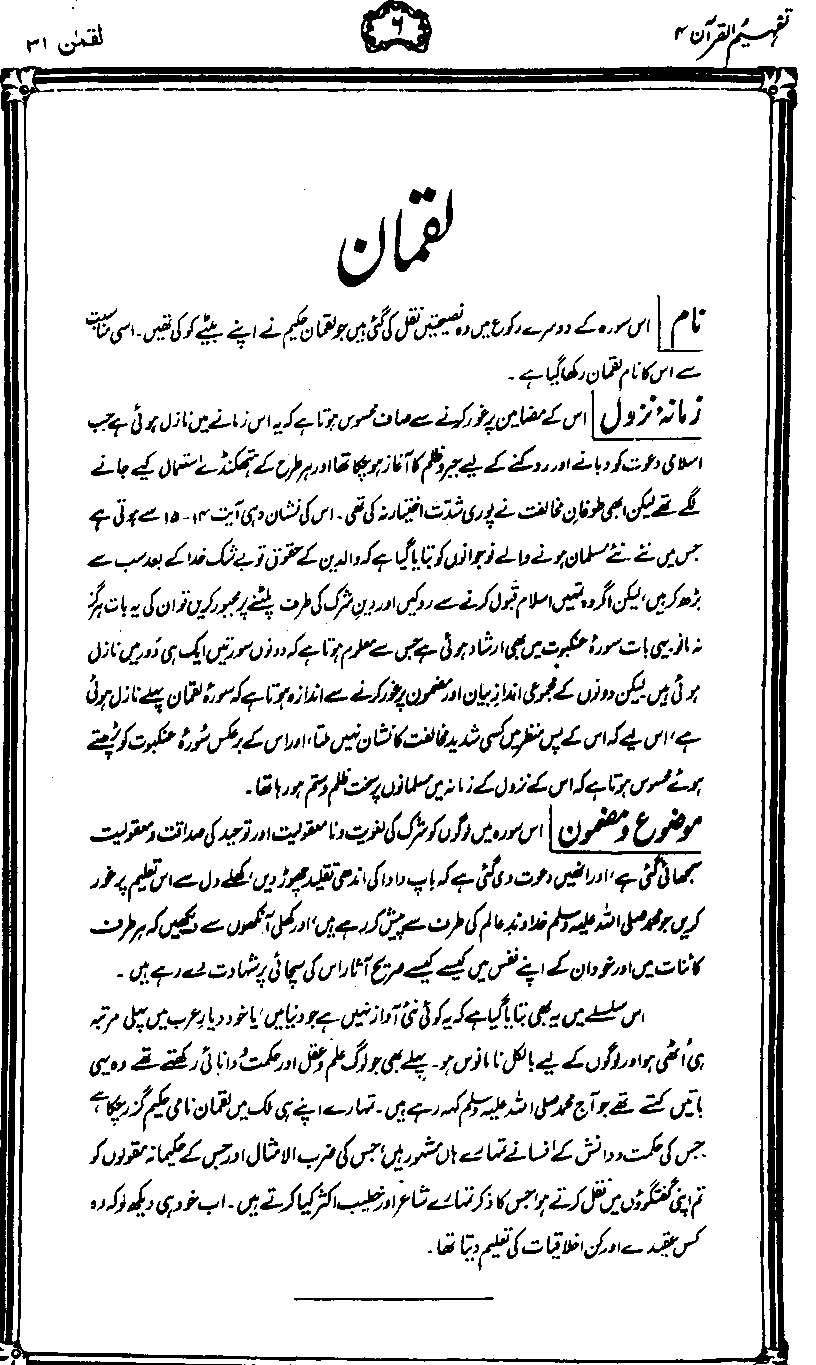 تفہیم القرآن ۴
۶
لقمٰن ۳۱
لقمان
نام اس سورہ کے دوسرے رکوع میں وہ نصیحتیں نقل کی گئی ہیں جو لقمان حکیم نے اپنے بیٹے کو کی تھیں۔ اسی مناسبت
سے اس کا نام لقمان رکھا گیا ہے۔
زمانۂ نزول اس کے مضامین پر غور کرنے سے صاف محسوس ہوتا ہے کہ یہ اس زمانے میں نازل ہوئی ہے جب
اسلامی دعوت کو دبانے اور روکنے کے لیے جبر و ظلم کا آغاز ہو چکا تھا اور ہر طرح کے ہتھکنڈے استعمال کیے جانے
لگے تھے لیکن ابھی طوفانِ مخالفت نے پوری شدت اختیار نہ کی تھی۔ اس کی نشان دہی آیت ۱۴-۱۵ سے ہوتی ہے
جس میں نئے نئے مسلمان ہونے والے نوجوانوں کو بتایا گیا ہے کہ والدین کے حقوق تو بے شک خدا کے بعد سب سے
بڑھ کر ہیں، لیکن اگر وہ تمہیں اسلام قبول کرنے سے روکیں اور دینِ شرک کی طرف پلٹنے پر مجبور کریں تو ان کی یہ بات ہرگز
نہ مانو۔ یہی بات سورۂ عنکبوت میں بھی ارشاد ہوئی ہے جس سے معلوم ہوتا ہے کہ دونوں سورتیں ایک ہی دَور میں نازل
ہوئی ہیں۔ لیکن دونوں کے مجموعی اندازِ بیان اور مضمون پر غور کرنے سے اندازہ ہوتا ہے کہ سورۂ لقمان پہلے نازل ہوئی
ہے، اس لیے کہ اس کے پس منظر میں کسی شدید مخالفت کا نشان نہیں ملتا، اور اس کے برعکس سُورۂ عنکبوت کو پڑھتے
ہوئے محسوس ہوتا ہے کہ اس کے نزول کے زمانہ میں مسلمانوں پر سخت ظلم و ستم ہو رہا تھا۔
موضوع و مضمون اس سورہ میں لوگوں کو شرک کی لغویت و نامعقولیت اور توحید کی صداقت و معقولیت
سمجھائی گئی ہے، اور انھیں دعوت دی گئی ہے کہ باپ دادا کی اندھی تقلید چھوڑ دیں، کھلے دل سے اس تعلیم پر غور
کریں جو محمد صلی اللہ علیہ وسلم خداوندِ عالم کی طرف سے پیش کر رہے ہیں، اور کھلی آنکھوں سے دیکھیں کہ ہر طرف
کائنات میں اور خود ان کے اپنے نفس میں کیسے کیسے صریح آثار اس کی سچائی پر شہادت دے رہے ہیں۔
اس سلسلے میں یہ بھی بتایا گیا ہے کہ یہ کوئی نئی آواز نہیں ہے جو دنیا میں، یا خود دیارِ عرب میں پہلی مرتبہ
ہی اُٹھی ہو اور لوگوں کے لیے بالکل نامانوس ہو۔ پہلے بھی جو لوگ علم و عقل اور حکمت و دانائی رکھتے تھے وہ یہی
باتیں کہتے تھے جو آج محمد صلی اللہ علیہ وسلم کہہ رہے ہیں۔ تمہارے اپنے ہی ملک میں لقمان نامی حکیم گزر چکا ہے
جس کی حکمت و دانش کے افسانے تمہارے ہاں مشہور ہیں، جس کی ضرب الامثال اور جس کے حکیمانہ مقولوں کو
تم اپنی گفتگوؤں میں نقل کرتے ہو، جس کا ذکر تمہارے شاعر اور خطیب اکثر کیا کرتے ہیں۔ اب خود ہی دیکھ لو کہ وہ
کس عقیدے اور کن اخلاقیات کی تعلیم دیتا تھا۔